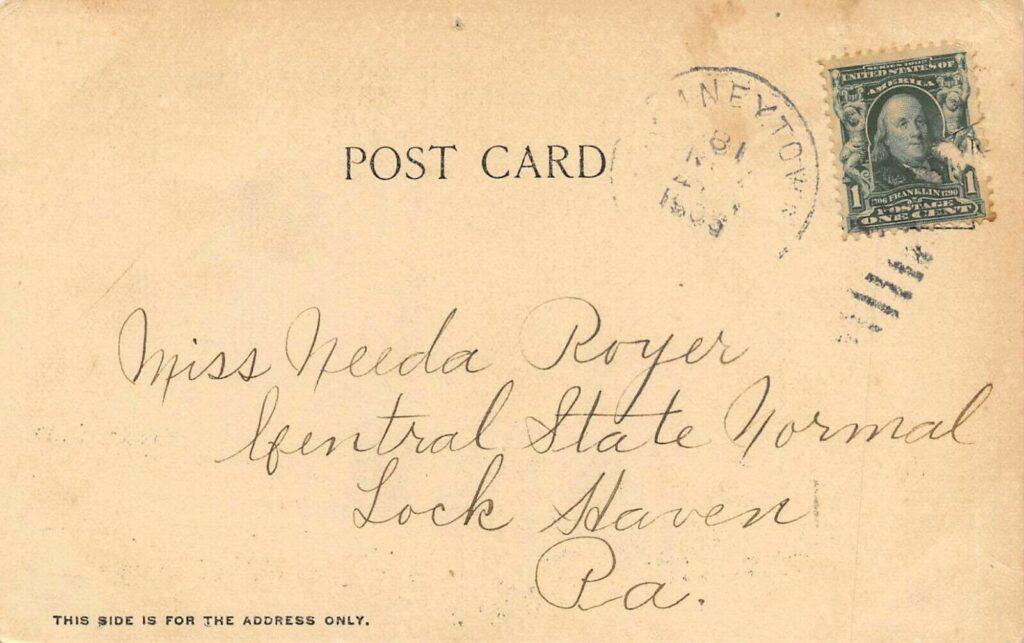 SERIES 1902
UNITED STATES OF
AMERICA
1706 FRANKLIN 1790
1 1
POSTAGE
ONE CENT
POST CARD
Miss Needa Royer
Central State Normal
Lock Haven
Pa.
THIS SIDE IS FOR THE ADDRESS ONLY.